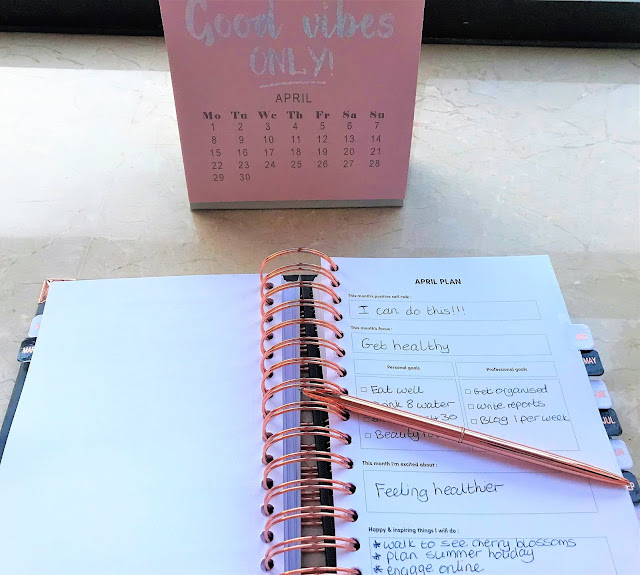 Good vibes
ONLY!
APRIL
Mo Tu We Th Fr Sa Su
1 2 3 4 5 6 7
8 9 10 11 12 13 14
15 16 17 18 19 20 21
22 23 24 25 26 27 28
29 30
APRIL PLAN
This month's positive self-talk :
I can do this!!!
This month's focus :
Get healthy
Personal goals
Professional goals
Eat well
8 water
30
Beauty
Get organised
write reports
Blog 1 per week
This month I'm excited about :
Feeling healthier
Happy & inspiring things I will do :
* walk to see cherry blossoms
* plan summer holiday
* engage online
MAY